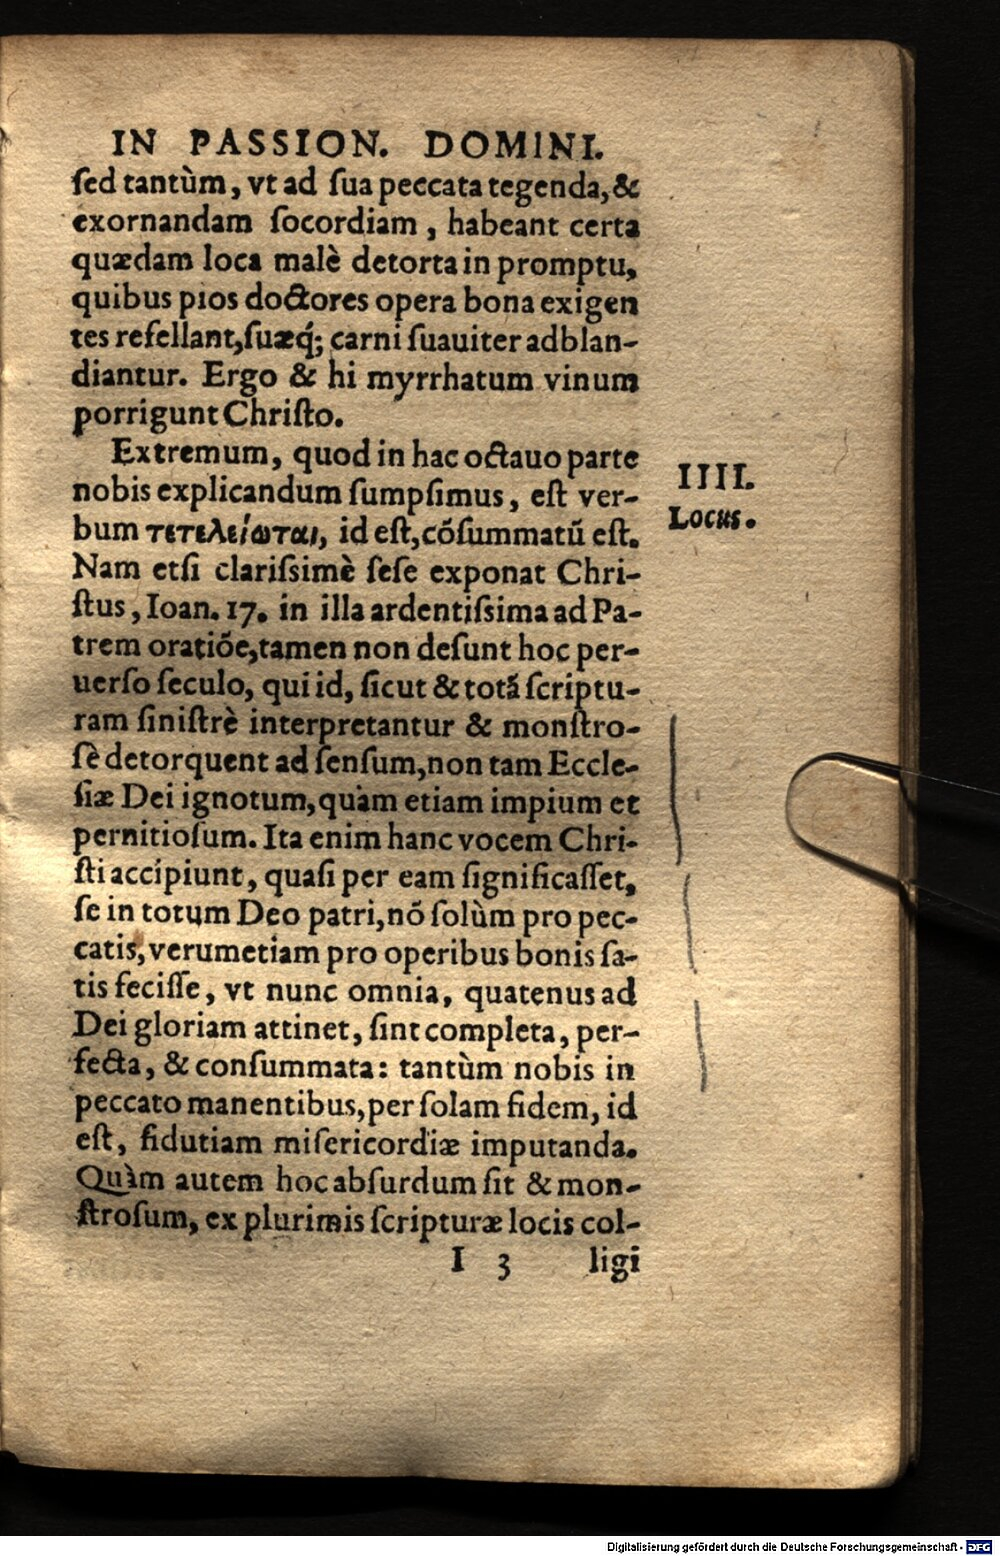 IN PASSION. DOMINI.
ſed tantùm, vt ad ſua peccata tegenda, &
exornandam ſocordiam, habeant certa
quædam loca malè detorta in promptu,
quibus pios doctores opera bona exigen
tes refellant, ſuæq́; carni ſuauiter adblan-
diantur. Ergo & hi myrrhatum vinum
porrigunt Chriſto.
Extremum, quod in hac octauo parte
nobis explicandum ſumpſimus, eſt ver-
bum τετελείωται, id eſt, cõſummatũ eſt.
Nam etſi clariſsimè ſeſe exponat Chri-
ſtus, Ioan. 17. in illa ardentiſsima ad Pa-
trem oratiõe, tamen non deſunt hoc per-
uerſo ſeculo, qui id, ſicut & totã ſcriptu-
ram ſiniſtrè interpretantur & monſtro-
ſè detorquent ad ſenſum, non tam Eccle-
ſiæ Dei ignotum, quàm etiam impium et
pernitioſum. Ita enim hanc vocem Chri-
ſti accipiunt, quaſi per eam ſignificaſſet,
ſe in totum Deo patri, nõ ſolùm pro pec-
catis, verumetiam pro operibus bonis ſa-
tis feciſſe, vt nunc omnia, quatenus ad
Dei gloriam attinet, ſint completa, per-
fecta, & conſummata: tantùm nobis in
peccato manentibus, per ſolam fidem, id
eſt, fidutiam miſericordiæ imputanda.
Quàm autem hoc abſurdum ſit & mon-
ſtroſum, ex plurimis ſcripturæ locis col-
I 3 ligi
IIII.
Locus.
Digitalisierung gefördert durch die Deutsche Forschungsgemeinschaft - DFG